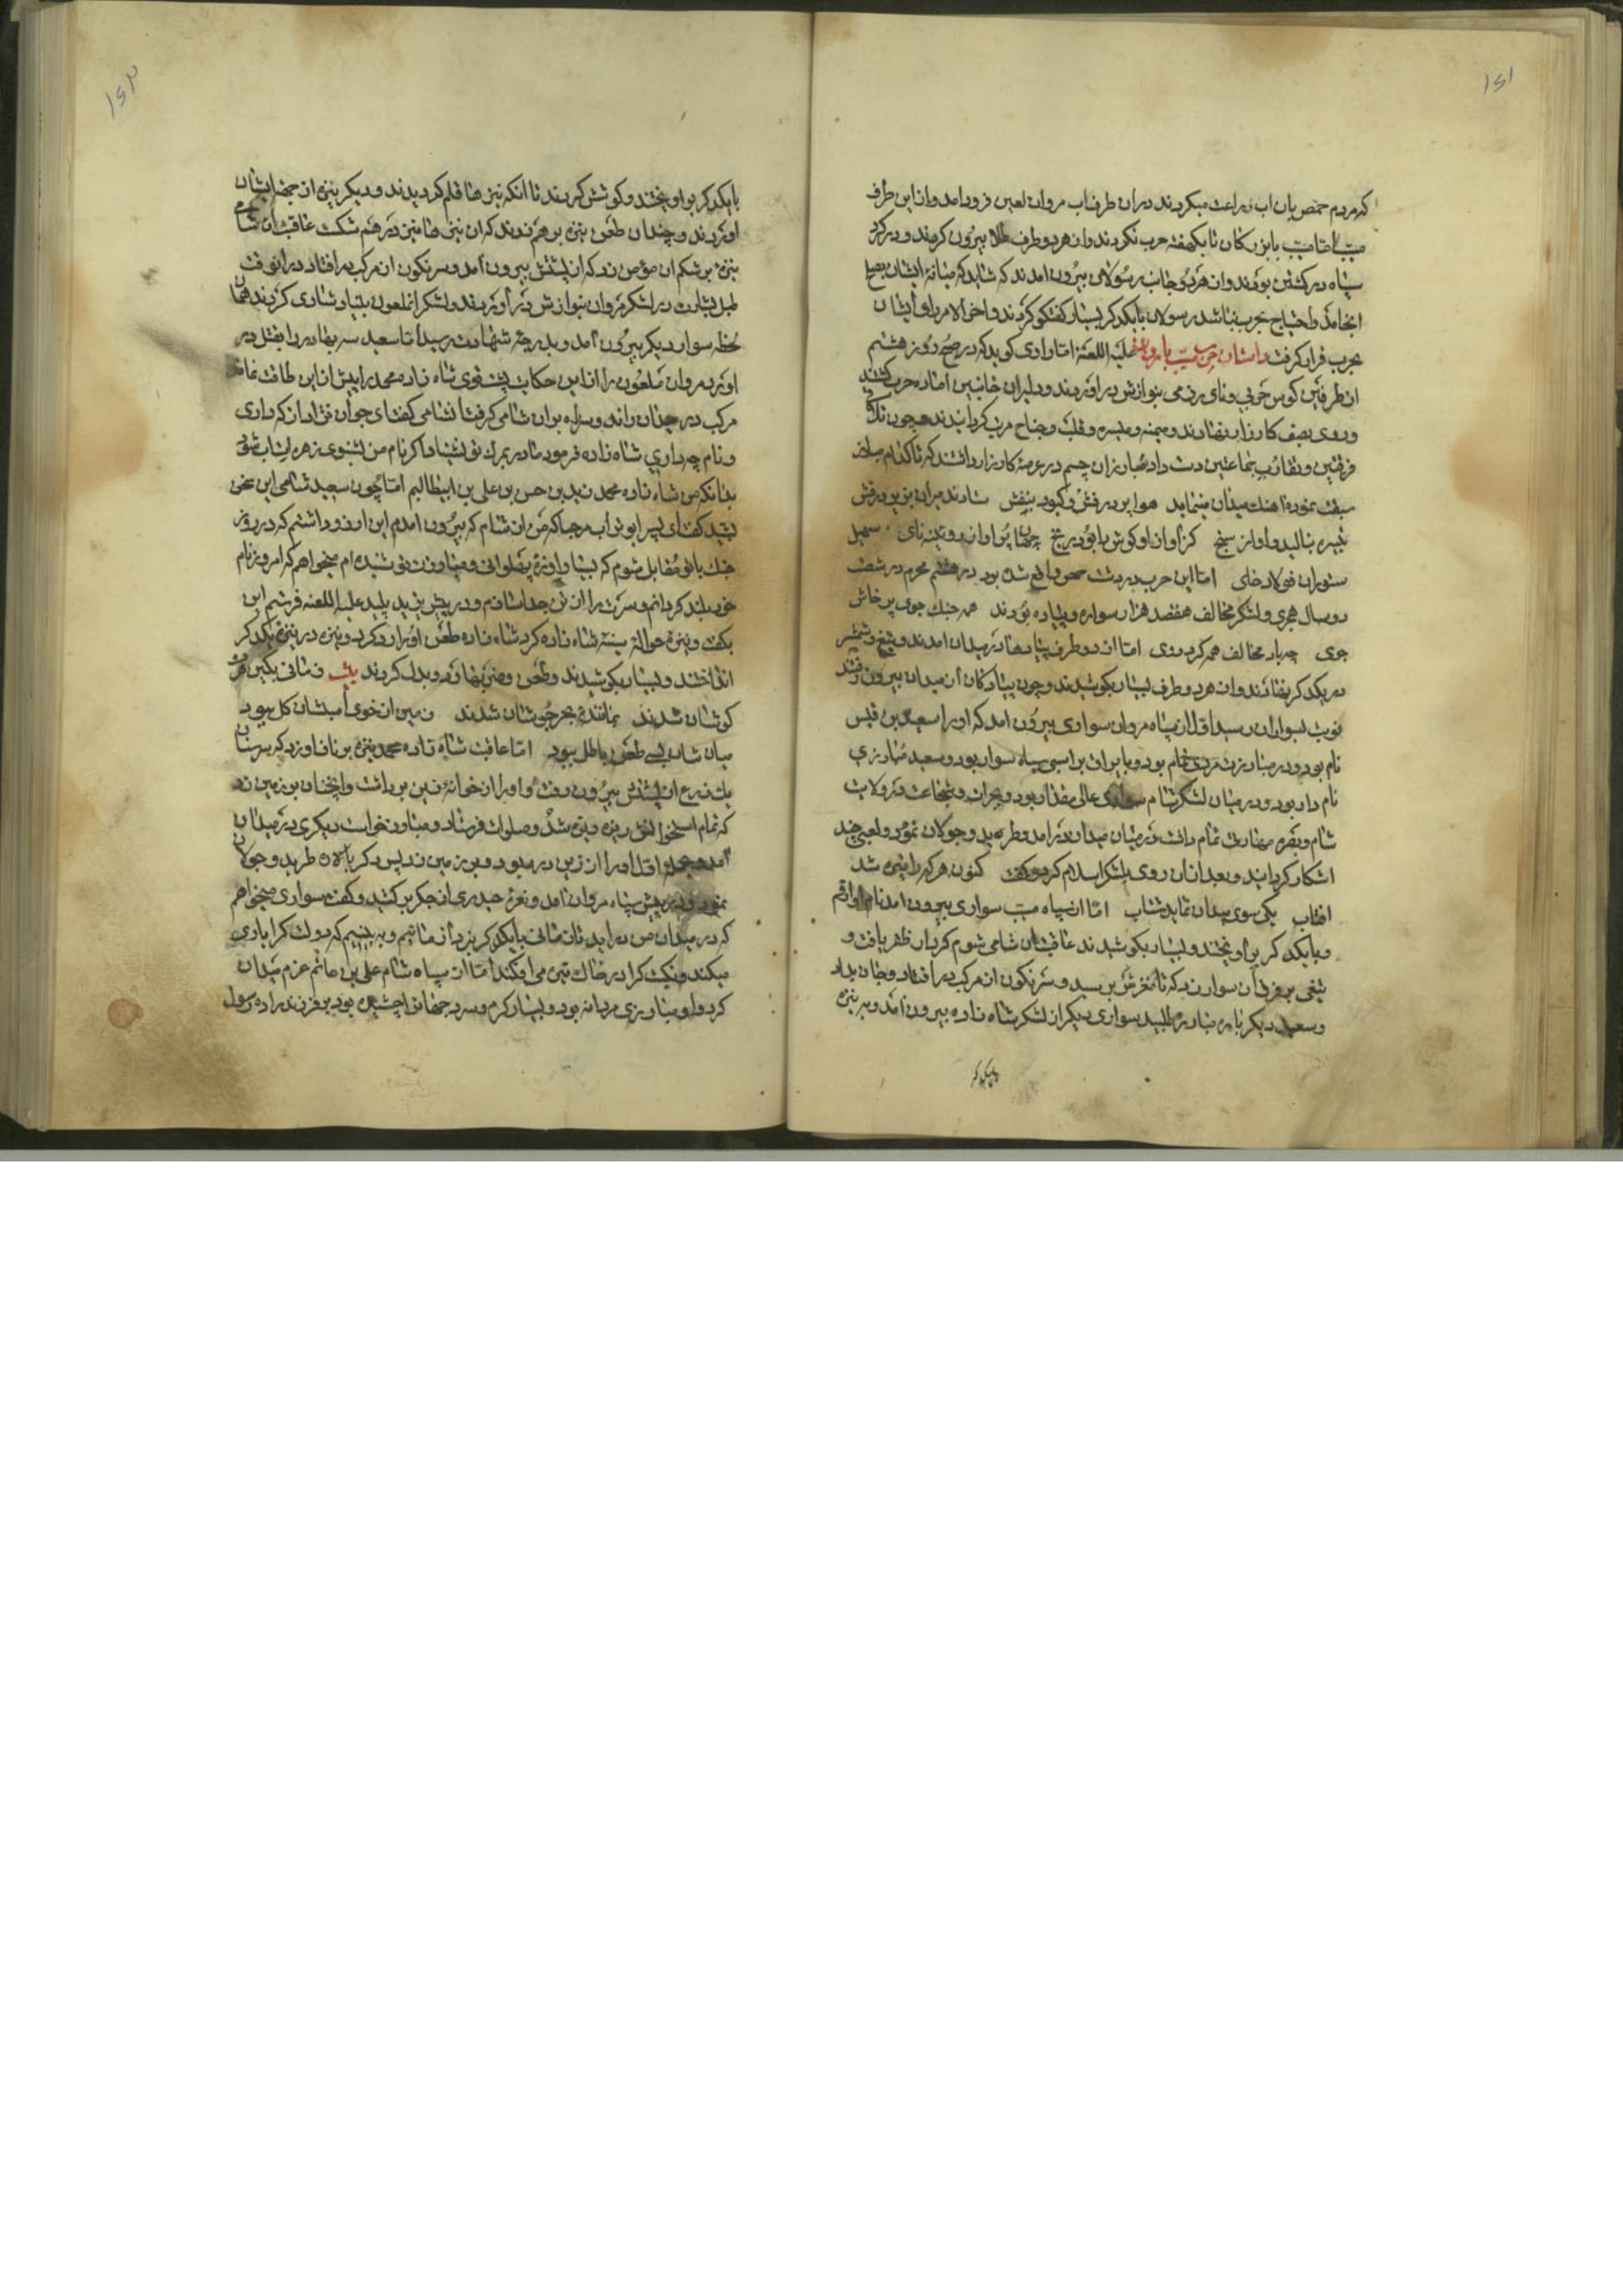 ۱۶۱
که مردم حمص بان اب زراعت میکردند در ان طرف اب مروان لعین فرود امد و از این طرف
مسیب با بزرکان تا یکهفته حرب نکردند و از هر دو طرف طلایه بیرون کردند و در کرد
سپاه در کشتن بودند و از هر دو جانب رسولان بیرون امدند که شاید که میانهٔ ایشان بصلح
انجامد و احتیاج بحرب نباشد رسولان با یکدکر بسیار کفتکو کردند و اخر الامر رای ایشان
بحرب قرار کرفت داستان حرب مسیب با مروان علیه اللعنه اما راوی کوید که در صبح روز هشتم
از طرفین کوس حربی و نای رزمی بنوازش در اوردند و دلیران جانبین اماده حرب کشتند
و روی بصف کارزار نهادند و میمنه و میسره و قلب و جناح مرتب کردانیدند همچون تلاقی
فریقین و تقارب جماعتین دست داد مبارزان چشم در عرصهٔ کارزار داشتند که تا کدام مبارز
سبقت نموده اهنک میدان مینماید هوا پر درفش و کبود بنفش
تبیره بنالید و اواز سنج روئینه نای
ستوران فولاد خای اما این حرب در دشت حمص واقع شده بود در هشتم محرم در شصت
دو سال هجری و لشکر مخالف هفتصد هزار سواره و پیاده بودند همه جنک جوی پرخاش
جوی اما از دو طرف پیاده‌ها در میدان امدند و تیغ و شمشیر
در یکدکر نهادند و از هر دو طرف بسیار بکوشیدند و چون پیادکان از میدان بیرون رفتند
نوبت بسواران رسید اول از سپاه مروان سواری بیرون امد که او را سعید بن قیس
نام بود و در مبارزت مردی تمام بود و با یراق بر اسبی سیاه سوار بود و سعید مبارزی
نام دار بود و در میان لشکر شام سواری عالی مقدار بود و بجرات و شجاعت در ولایت
شام و بصره مهارت تمام داشت در میان میدان در امد و طرید و جولان نمود و لعبی چند
اشکار کردانید و بعد از ان روی بلشکر اسلام کرد و کفت کنون هر که را تیره شد
افتاب یکی سوی میدان نماید شتاب اما از سپاه مسیب سواری بیرون امد نام او ارقم
و با یکدکر بر اویختند و بسیار بکوشیدند عاقبت ان شامی شوم کردار ظفر یافت و
تیغی بر فرق ان سوار زد که تا مغزش برسید و سرنکون از مرکب در افتاد و جان بداد
و سعید دیکر باره مبارز طلبید سواری دیکر از لشکر شاه زاده بیرون امد و به نیزه
با یکدکر
۱۶۲
با یکدکر بر اویختند و کوشش کردند تا انکه نیزه‌ها قلم کردیدند و دیکر نیزه از
اوردند و چندان طعن نیزه بر هم زدند که ان نیزه‌ها نیز در هم شکست عاقبت ان شامی
نیزه بر شکم ان مؤمن زد که از پشتش بیرون امد و سرنکون از مرکب در افتاد در انوقت
طبل بشارت در لشکر مروان بنوازش در اوردند و لشکر انملعون بسیار شادی کردند همان
لحظه سوار دیکر بیرون امد و بدرجهٔ شهادت رسید اما سعید سه بهادر را بقتل در
اورد مروان ملعون را از این حکایت پشت قوی شد شاه زاده محمد را پیش از این طاقت نماند
مرکب در میدان راند و سر راه بر ان شامی کرفت انشامی کفت ای جوان نژاد از که داری
و نام چه داری شاه زاده فرمود مادر بمرک تو نشیناد اکر نام من بشنوی زهره‌ات اب شود
بدانکه من شاه زاده محمد زید بن حسن بن علی بن ابیطالبم اما چون سعید شامی این سخن
بشنید کفت ای پسر ابو تراب مرحبا که من از شام که بیرون امدم این ارزو داشتم که در روز
جنک با تو مقابل شوم که بسیار اوازهٔ پهلوانی و مبارزت تو شنیده ام میخواهم که امروز نام
خود بلند کردانم و سرت را از تن جدا سازم و در پیش یزید پلید علیه اللعنه فرستم این
بکفت و نیزه حوالهٔ سینهٔ شاه زاده کرد شاه زاده طعن او را رد کرد و نیزه در نیزهٔ یکدکر
انداختند و بسیار بکوشیدند و طعن و ضربتها رد و بدل کردند بیت زمانی بکین هر دو
کوشان شدند بمانندهٔ بحر جوشان شدند زمین از خوی اسبشان کل ببود
میان شان بسی طعن باطل ببود اما عاقبت شاه زاده محمد نیزه بر ناف او زد که سر سنان
یک ذرع از پشتش بیرون رفت و او را از خانهٔ زین برداشت و انچنان بر زمین زد
که تمام استخوانش ریزه ریزه شد و صلوات فرستاد و مبارز خواست دیکری در میدان
امد اول او را از زین در ربود و بر زمین زد پس دکر باره طرید و جولان
نمود و در پیش سپاه مروان امد و نعرهٔ حیدری از جکر بر کشید و کفت سواری میخواهم
که در میدان من در اید تا زمانی با یکدکر نبرد ازمائیم و به بینیم که دولت کرا یاری
میکند و نکبت کرا در خاک تیره می افکند اما از سپاه شام علی بن حاتم عزم میدان
کرد و او مبارزی مردانه بود و بسیار کرم و سرد جهان را چشیده بود بر فرزند زاده رسول